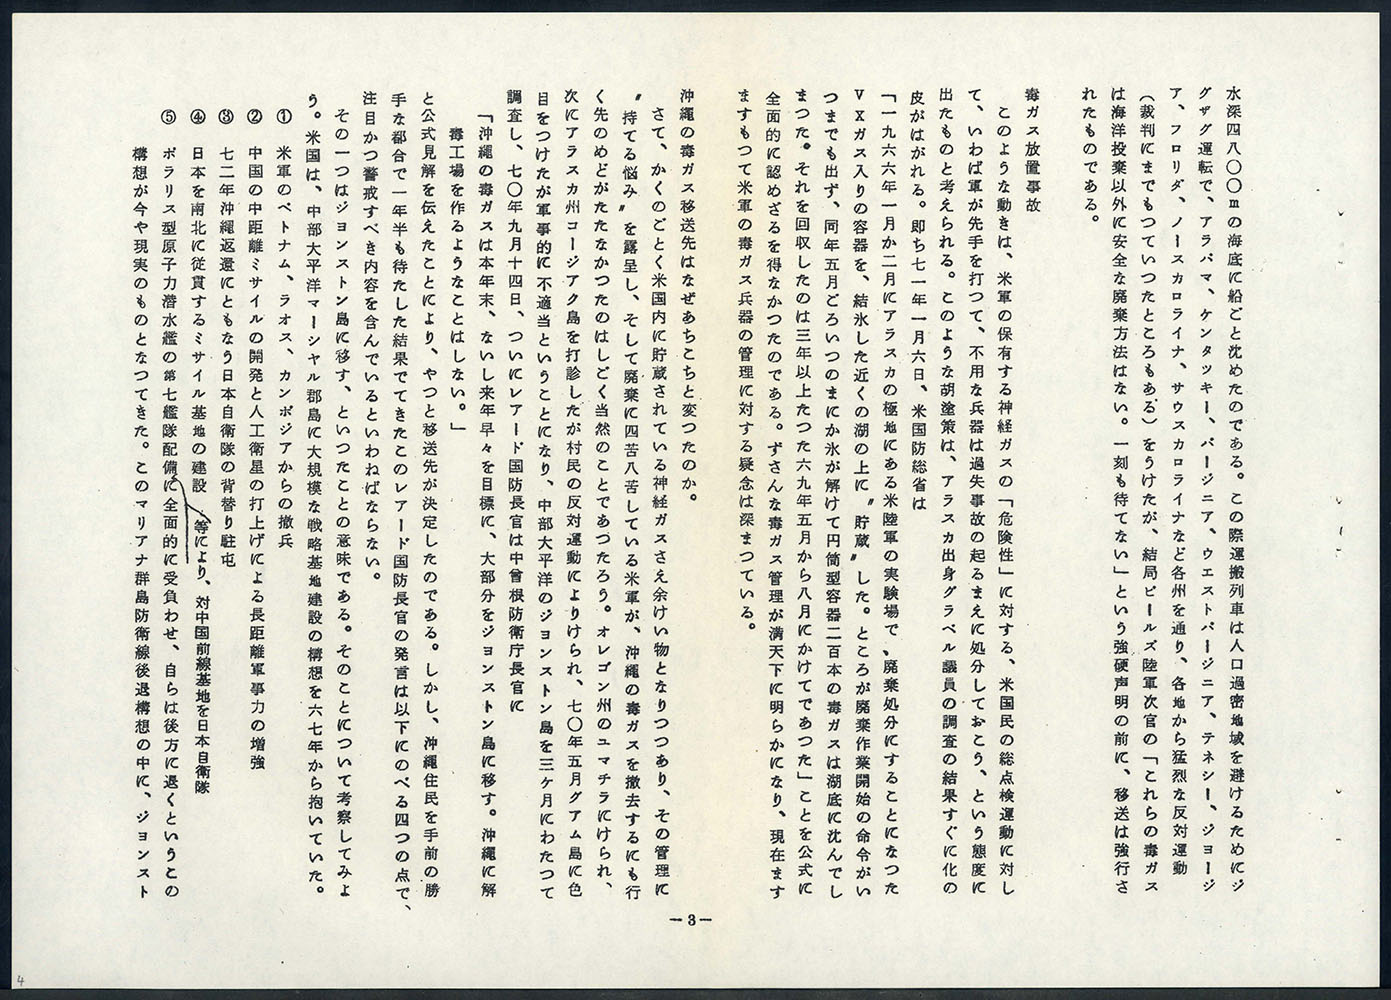 水深四八〇〇mの海底に船ごと沈めたのである。この際運搬列車は人口過密地域を避けるためにジ
グザグ運転で、アラバマ、ケンタッキー、バージニア、ウエストバージニア、テネシー、ジョージ
ア、フロリダ、ノースカロライナ、サウスカロライナなど各州を通り、各地から猛烈な反対運動
(裁判にまでもつていつたところもある)をうけたが、結局ビールズ陸軍次官の「これらの毒ガス
は海洋投棄以外に安全な廃棄方法はない。一刻も待てない」という強硬声明の前に、移送は強行さ
れたものである。
毒ガス放置事故
このような動きは、米軍の保有する神経ガスの「危険性」に対する、米国民の総点検運動に対し
て、いわば軍が先手を打つて、不用な兵器は過失事故の起るまえに処分しておこう、という態度に
出たものと考えられる。このような胡塗策は、アラスカ出身グラベル議員の調査の結果すぐに化の
皮がはがれる。即ち七一年一月六日、米国防総省は
「一九六六年一月か二月にアラスカの極地にある米陸軍の実験場で、廃棄処分にすることになつた
VXガス入りの容器を、結氷した近くの湖の上に〝貯蔵〟した。ところが廃棄作業開始の命令がい
つまでも出ず、同年五月ごろいつのまにか氷が解けて円筒型容器二百本の毒ガスは湖底に沈んでし
まつた。それを回収したのは三年以上たつた六九年五月から八月にかけてであつた」ことを公式に
全面的に認めざるを得なかつたのである。ずさんな毒ガス管理が満天下に明らかになり、現在ます
ますもつて米軍の毒ガス兵器の管理に対する疑念は深まつている。
沖縄の毒ガス移送先はなぜあちこちと変つたのか。
さて、かくのごとく米国内に貯蔵されている神経ガスさえ余けい物となりつつあり、その管理に
〝持てる悩み〟を露呈し、そして廃棄に四苦八苦している米軍が、沖縄の毒ガスを撤去するにも行
く先のめどがたたなかつたのはしごく当然のことであつたろう。オレゴン州のユマチラにけられ、
次にアラスカ州コージアク島を打診したが村民の反対運動によりけられ、七〇年五月グアム島に色
目をつけたが軍事的に不適当ということになり、中部太平洋のジョンストン島を三ヶ月にわたつて
調査し、七〇年九月十四日、ついにレアード国防長官は中曾根防衛庁長官に
「沖縄の毒ガスは本年末、ないし来年早々を目標に、大部分をジョンストン島に移す。沖縄に解
毒工場を作るようなことはしない。」
と公式見解を伝えたことにより、やつと移送先が決定したのである。しかし、沖縄住民を手前の勝
手な都合で一年半も待たした結果でてきたこのレアード国防長官の発言は以下にのべる四つの点で、
注目かつ警戒すべき内容を含んでいるといわねばならない。
その一つはジョンストン島に移す、といつたことの意味である。そのことについて考察してみよ
う。米国は、中部太平洋マーシャル郡島に大規模な戦略基地建設の構想を六七年から抱いていた。
① 米軍のベトナム、ラオス、カンボジアからの撤兵
② 中国の中距離ミサイルの開発と人工衛星の打上げによる長距離軍事力の増強
③ 七二年沖縄返還にともなう日本自衛隊の背替り駐屯
④ 日本を南北に従貫するミサイル基地の建設 等により、対中国前線基地を日本自衛隊
⑤ ポラリス型原子力潜水艦の第七艦隊配備に全面的に受負わせ、自らは後方に退くというこの
構想が今や現実のものとなつてきた。このマリアナ群島防衛線後退構想の中に、ジョンスト
—3—
4